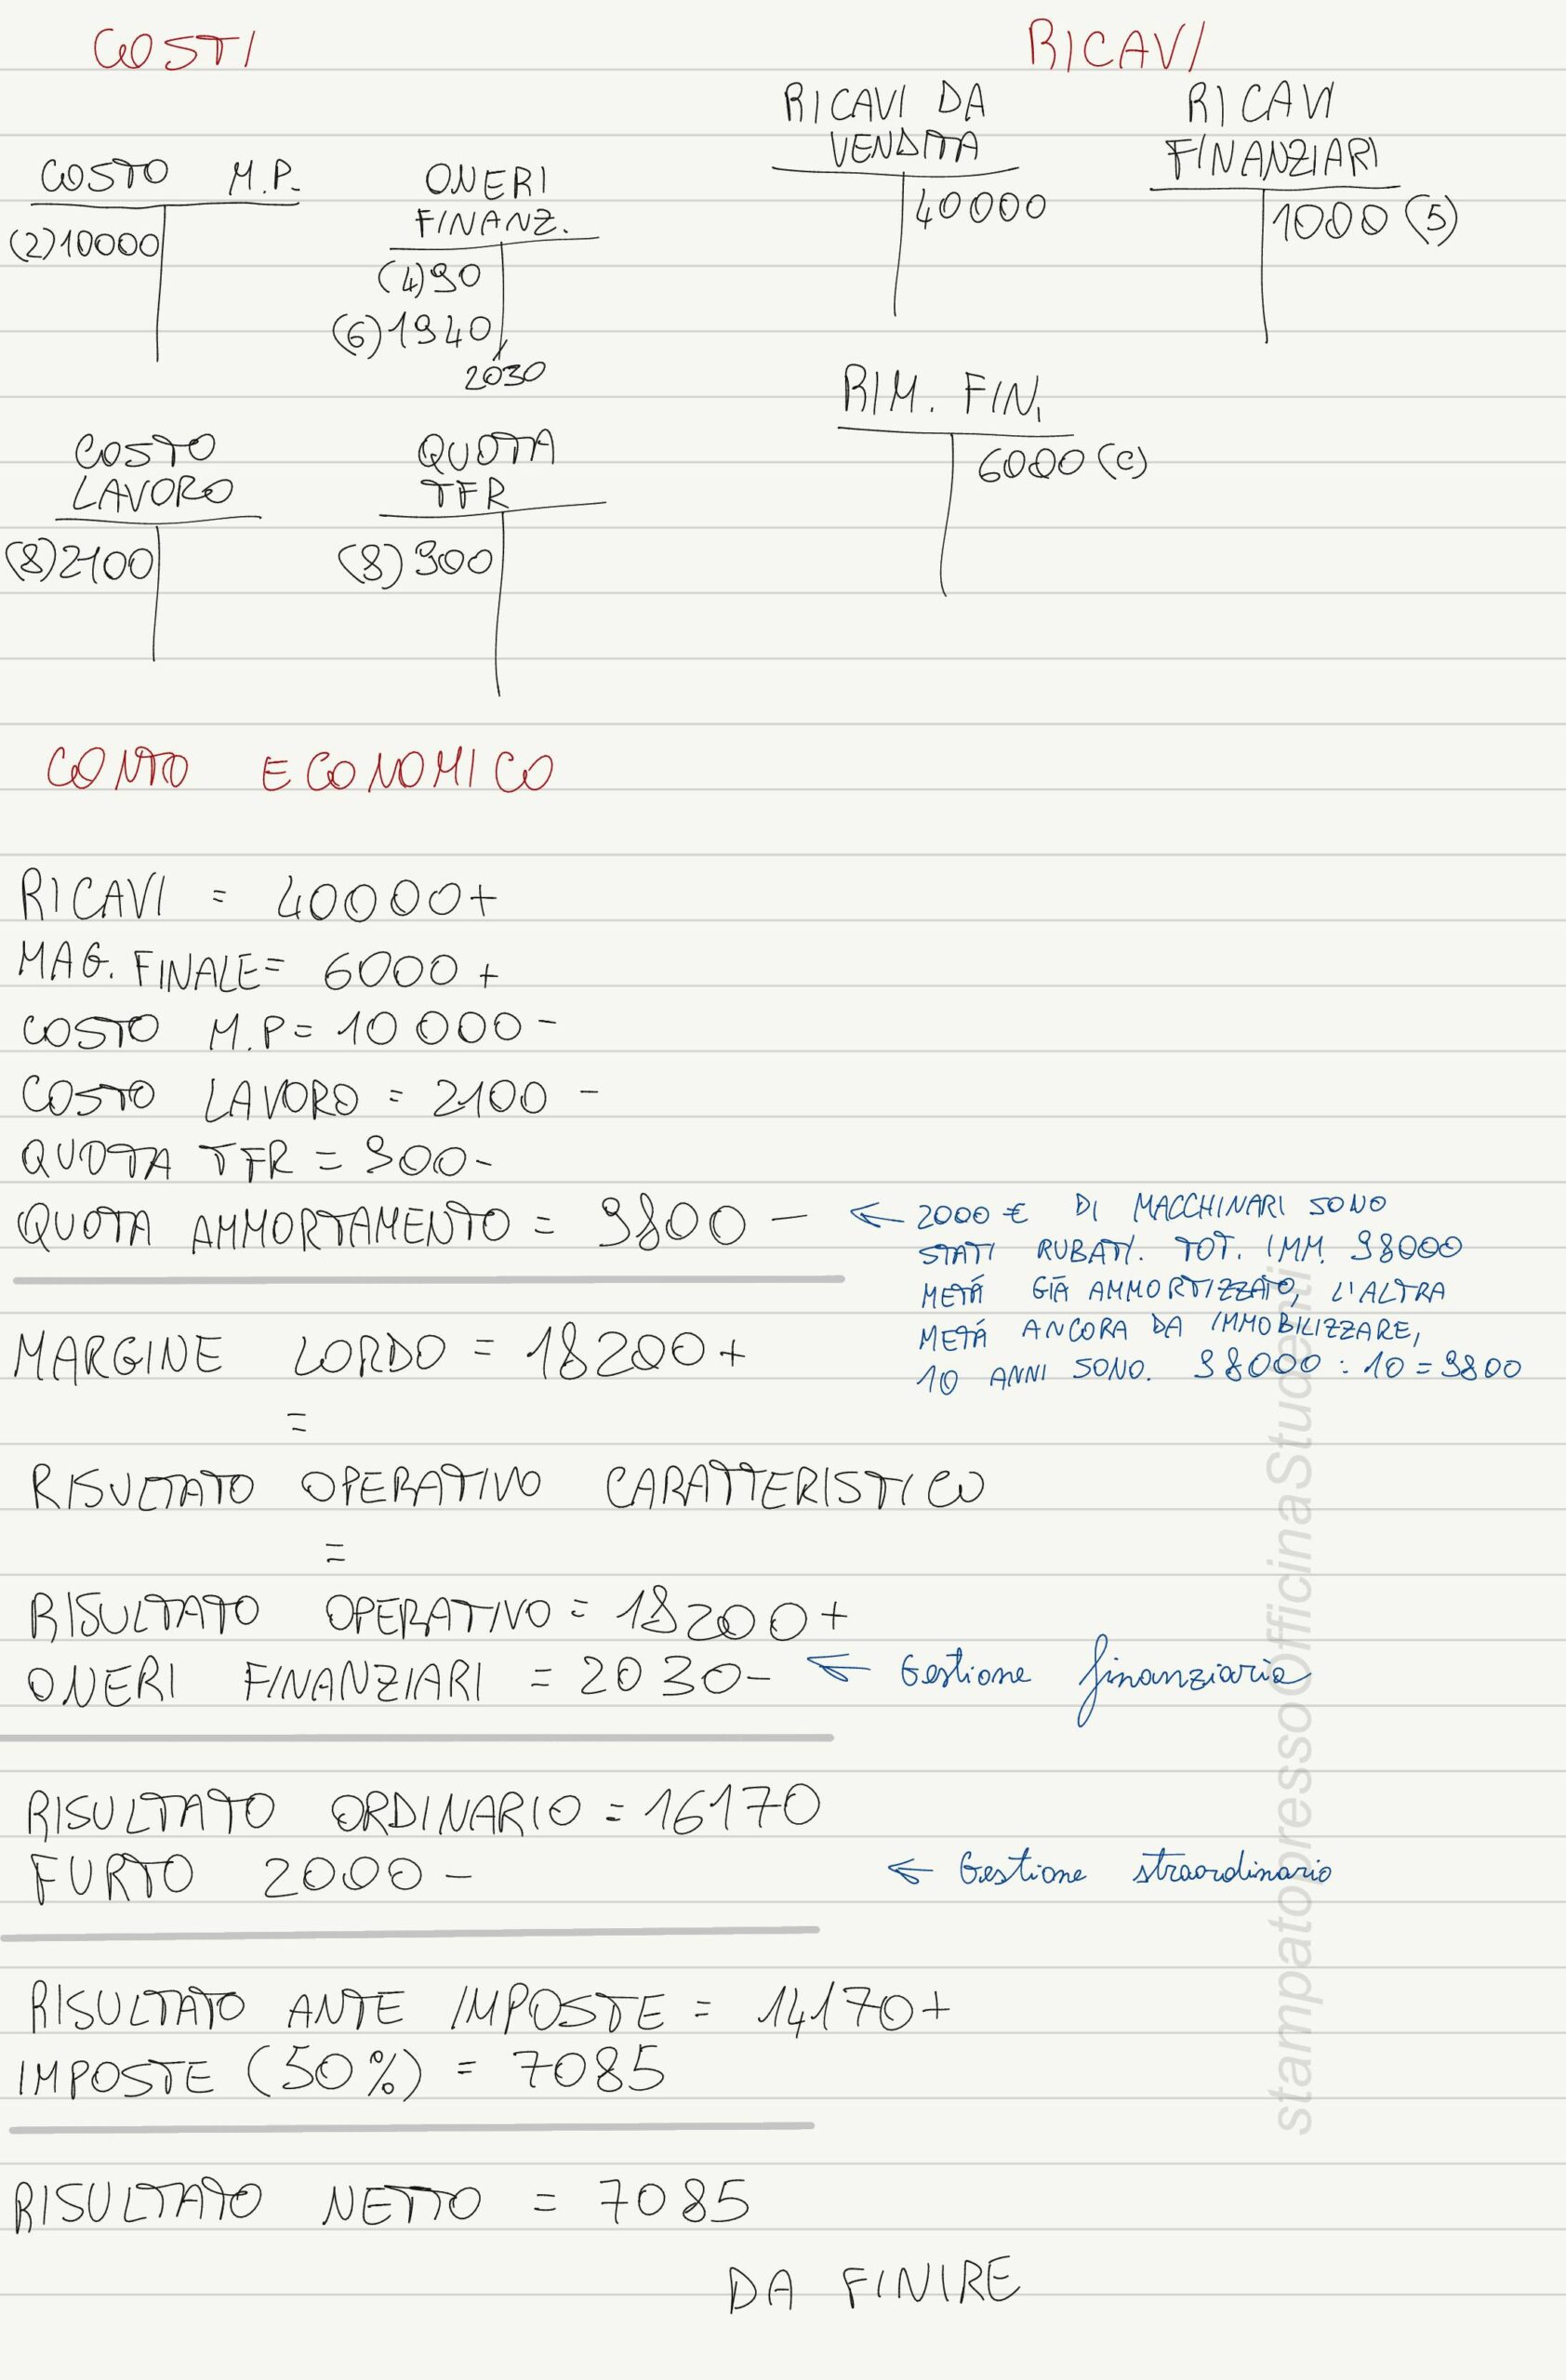 COSTI
RICAVI
COSTO M.P.
(2)10000
ONERI
FINANZ.
(4)90
(6)1940
2030
RICAVI DA
VENDITA
40000
RICAVI
FINANZIARI
1000 (5)
COSTO
LAVORO
(8)2100
QUOTA
TFR
(8)900
RIM. FIN.
6000 (c)
CONTO ECONOMICO
RICAVI = 40000+
MAG. FINALE= 6000 +
COSTO M.P= 10000-
COSTO LAVORO = 2100 -
QUOTA TFR = 900-
QUOTA AMMORTAMENTO = 9800 - ← 2000 € DI MACCHINARI SONO
STATI RUBATI. TOT. IMM. 98000
METÁ GIÁ AMMORTIZZATO, L'ALTRA
METÁ ANCORA DA IMMOBILIZZARE,
10 ANNI SONO. 98000 : 10 = 9800
MARGINE LORDO = 18200+
=
RISULTATO OPERATIVO CARATTERISTICO
=
RISULTATO OPERATIVO = 18200+
ONERI FINANZIARI = 2030- ← Gestione finanziaria
RISULTATO ORDINARIO = 16170
FURTO 2000 - ← Gestione straordinario
RISULTATO ANTE IMPOSTE = 14170+
IMPOSTE (50%) = 7085
RISULTATO NETTO = 7085
DA FINIRE
stampatopressoOfficinaStudenti